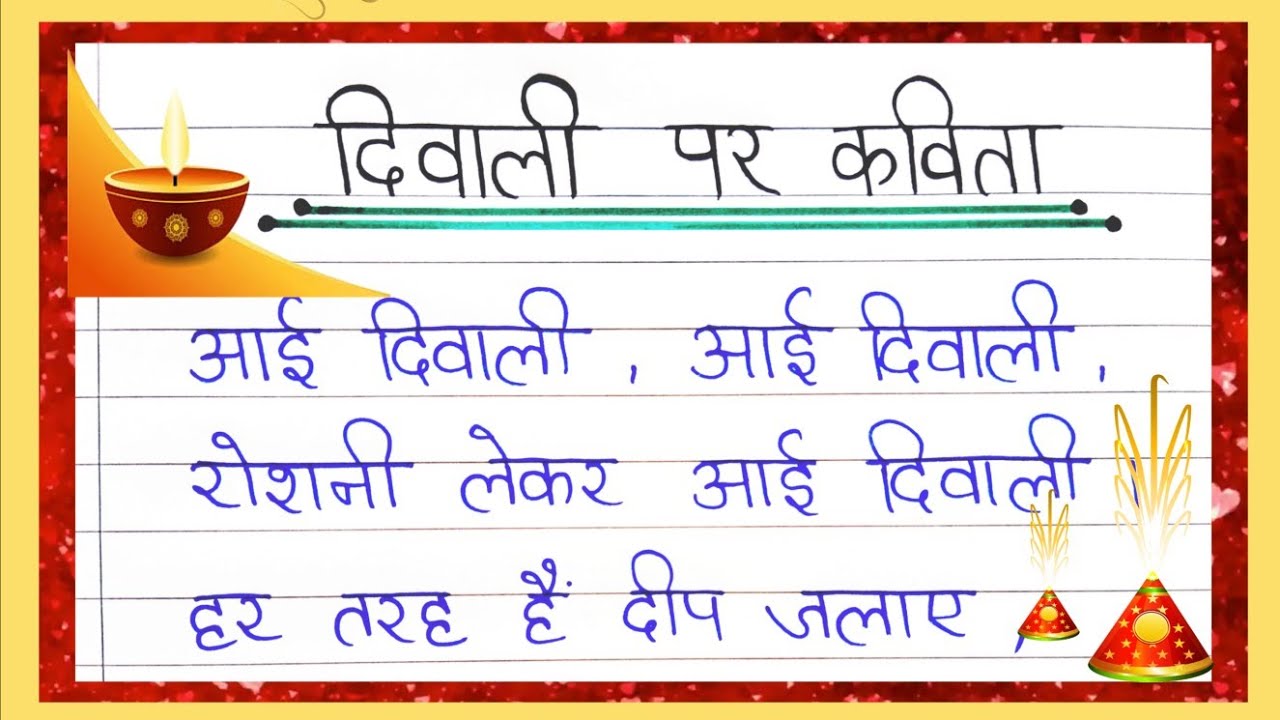 दिवाली पर कविता
आई दिवाली , आई दिवाली ,
रोशनी लेकर आई दिवाली ,
हर तरह हैं दीप जलाए ,